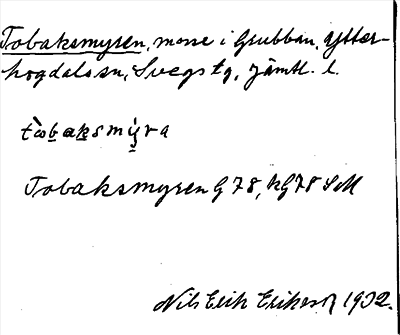 Tobaksmyren, mosse i Grubban, Ytter-
hogdals sn, Svegs tg, Jämtl. l.
tò̤baksmy̤ra
Tobaksmyren G 78, HG 78 SM
Nils Erik Erikson 1932.